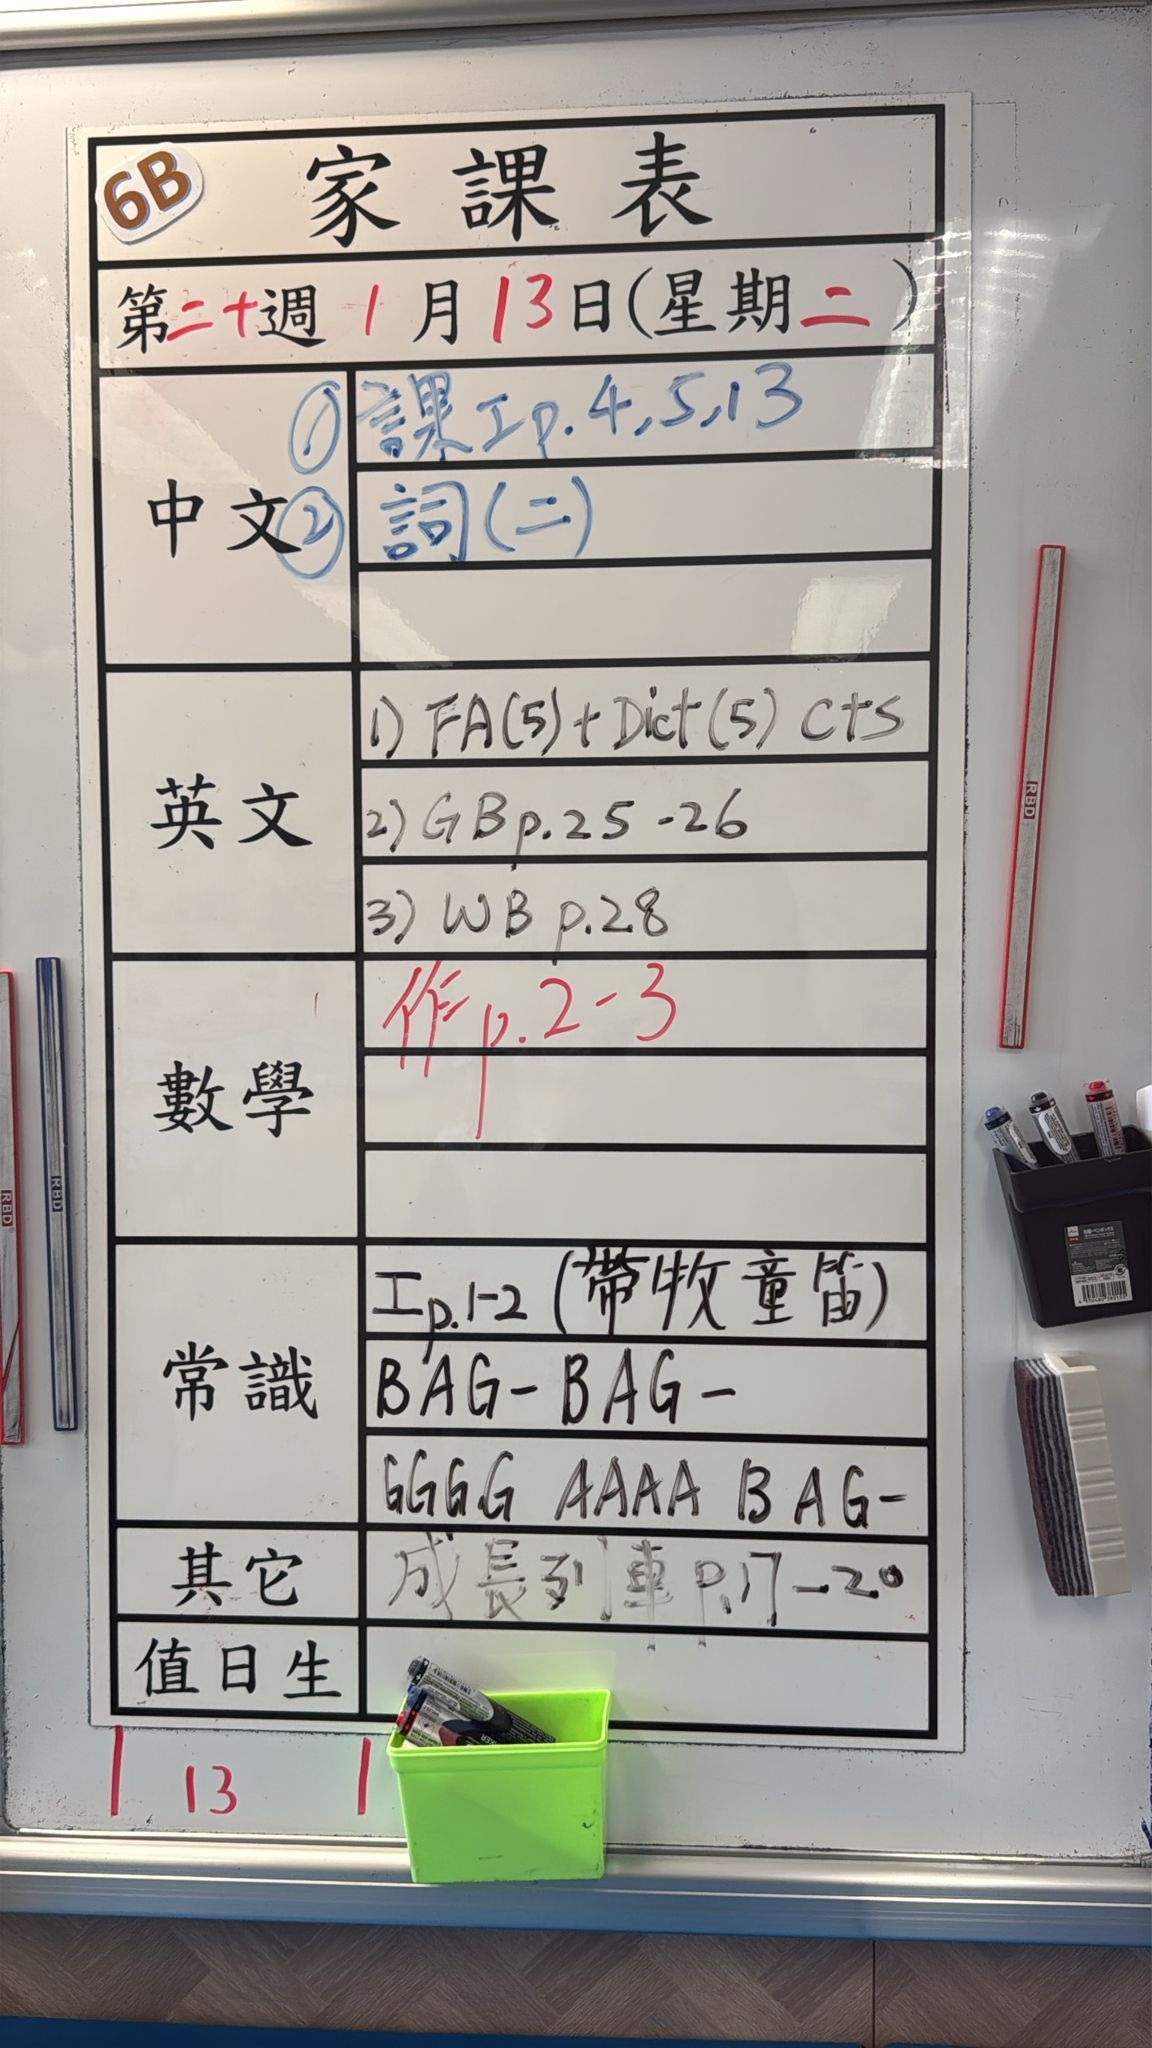 6B
家課表
第二十週 1月13日(星期二)
中文
① 課工p.4,5,13
② 詞(二)
英文
1) FA(5)+Dict(5) cts
2) GB p.25-26
3) WB p.28
數學
作p.2-3
常識
工p.1-2(帶牧童笛)
BAG- BAG-
GGGG AAAA BAG-
其它
成長列車p.17-20
值日生
1 13 1
RBD
RBD
RBD